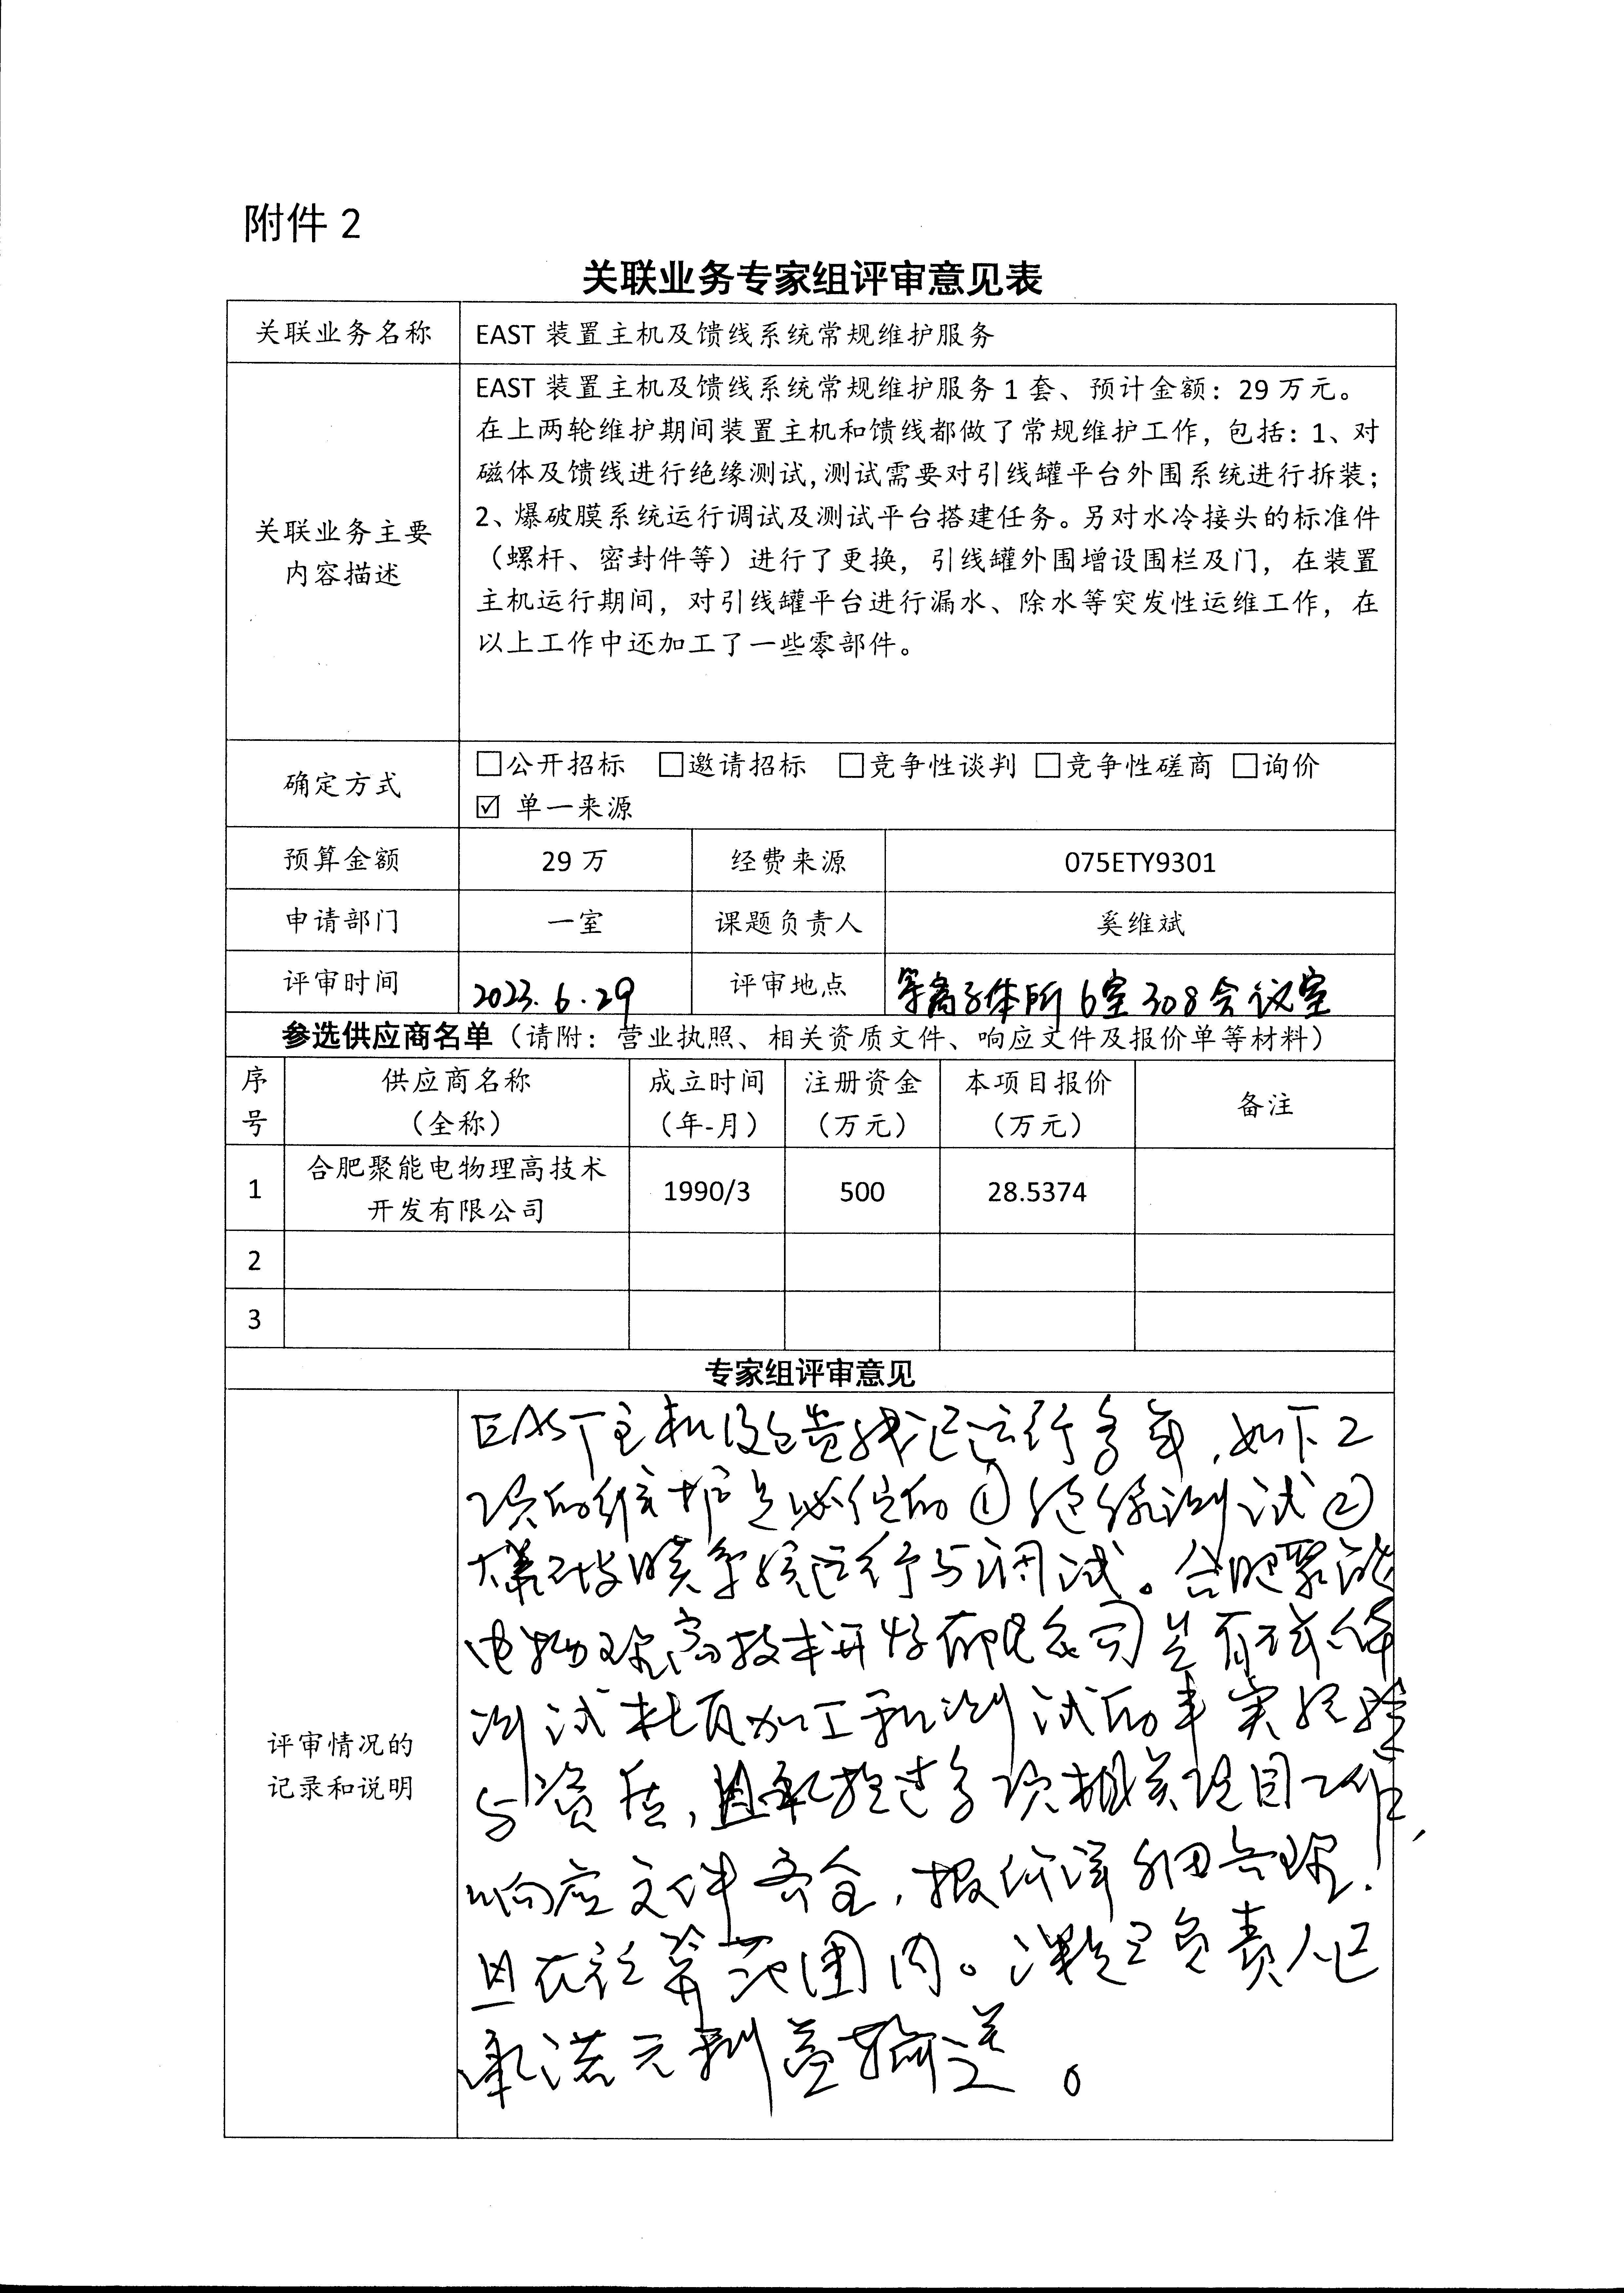 附件 2
关联业务专家组评审意见表
关联业务名称 EAST 装置主机及馈线系统常规维护服务
关联业务主要内容描述
EAST 装置主机及馈线系统常规维护服务 1 套、预计金额：29 万元。
在上两轮维护期间装置主机和馈线都做了常规维护工作，包括：1、对
磁体及馈线进行绝缘测试,测试需要对引线罐平台外围系统进行拆装；
2、爆破膜系统运行调试及测试平台搭建任务。另对水冷接头的标准件
（螺杆、密封件等）进行了更换，引线罐外围增设围栏及门，在装置
主机运行期间，对引线罐平台进行漏水、除水等突发性运维工作，在
以上工作中还加工了一些零部件。
确定方式 □公开招标 □邀请招标 □竞争性谈判 □竞争性磋商 □询价
☑ 单一来源
预算金额 29 万 经费来源 075ETY9301
申请部门 一室 课题负责人 奚维斌
评审时间 2023.6.29 评审地点 等离子体所6室308会议室
参选供应商名单（请附：营业执照、相关资质文件、响应文件及报价单等材料）
序号 供应商名称（全称） 成立时间（年-月） 注册资金（万元） 本项目报价（万元） 备注
1 合肥聚能电物理高技术开发有限公司 1990/3 500 28.5374
2
3
专家组评审意见
评审情况的记录和说明
EAST主机及馈线已运行多年，如下2
项的维护是必须的①绝缘测试②
爆破膜系统运行与调试。合肥聚能
电物理高技术开发有限公司具有
测试 加工和测试的丰实经验
与资质，且承担过多项相关项目工作，
响应文件齐全，报价详细合理，
且在预算范围内。课题负责人已
承诺无利益输送。